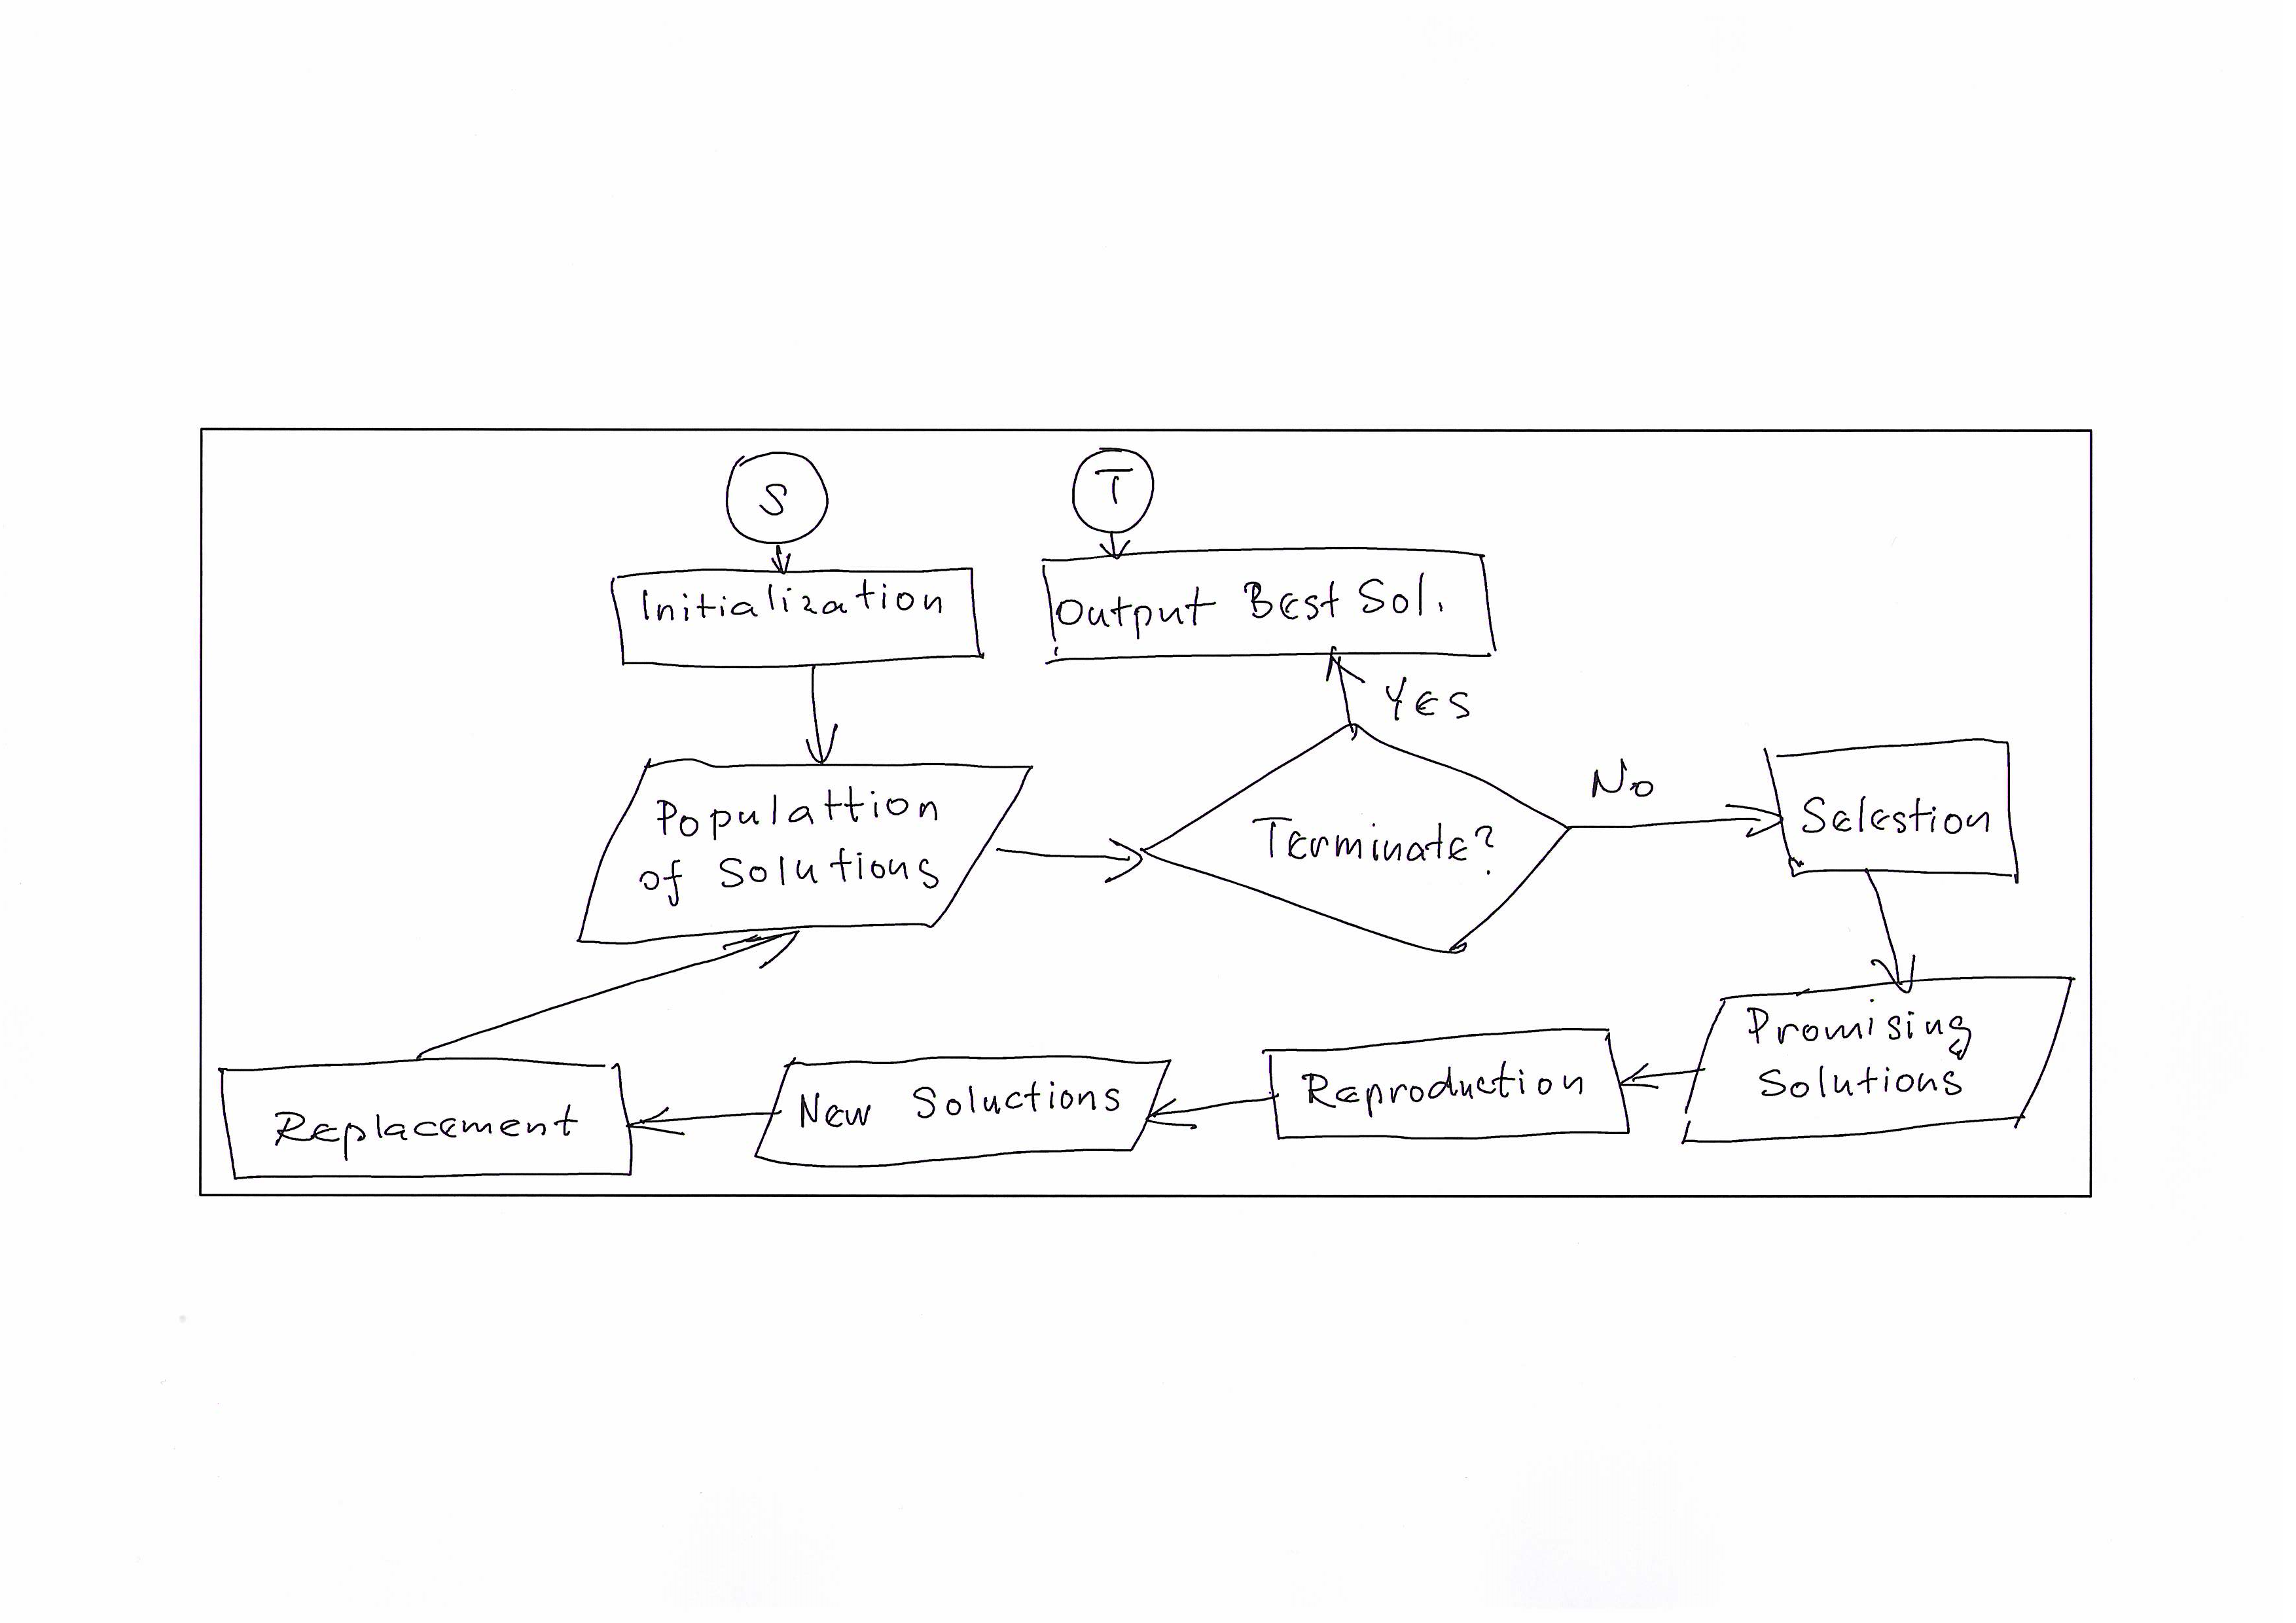 S
T
Initialization
Output Best Sol.
YES
Populattion
of Solutions
Terminate?
No
Selestion
Promising
Solutions
Reproduction
New Soluctions
Replacement